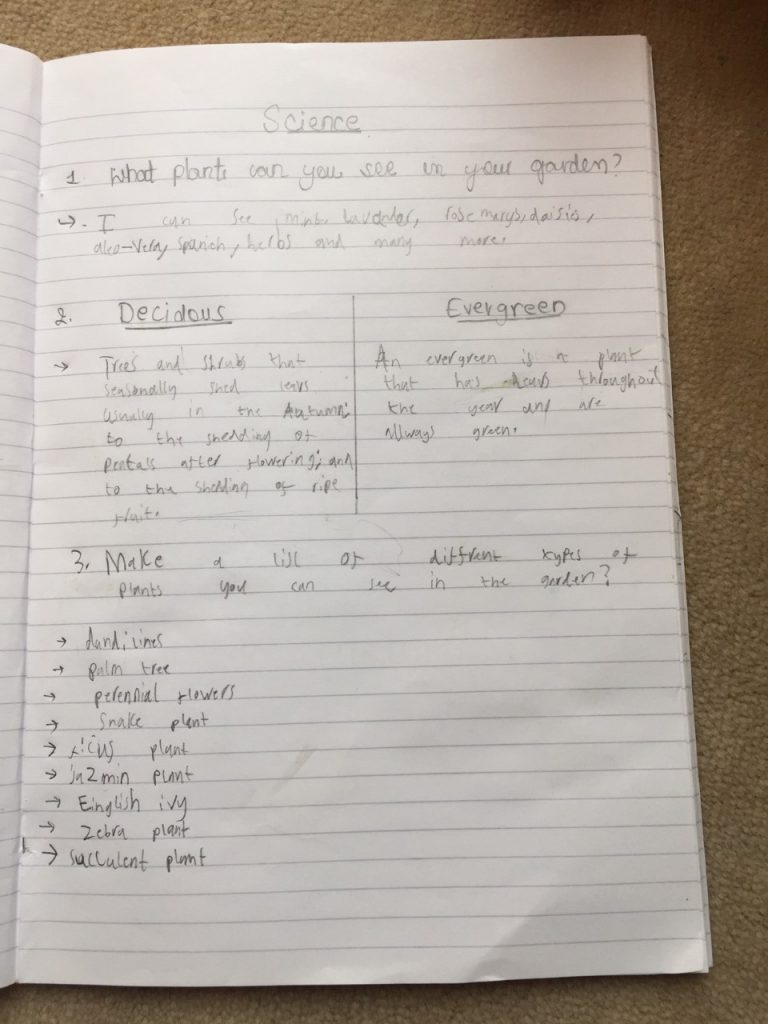 Science
1. What plants can you see in your garden?
→. I can see, mint, lavender, rosemarys, daisis,
aleo-Vera, spanich, herbs and many more.
2. Decidous
→ Trees and shrubs that
seasonally shed levs
usually in the Autumn;
to the shedding of
pentals after flowering; and
to the shedding of ripe
fruit.
Evergreen
An evergreen is a plant
that has leavs throughout
the year and are
allways green.
3. Make a list of diffrent types of
plants you can see in the garden?
→ dandilines
→ palm tree
→ perennial flowers
→ Snake plant
→ ficus plant
→ jazmin plant
→ Einglish ivy
→ Zebra plant
→ succulent plant